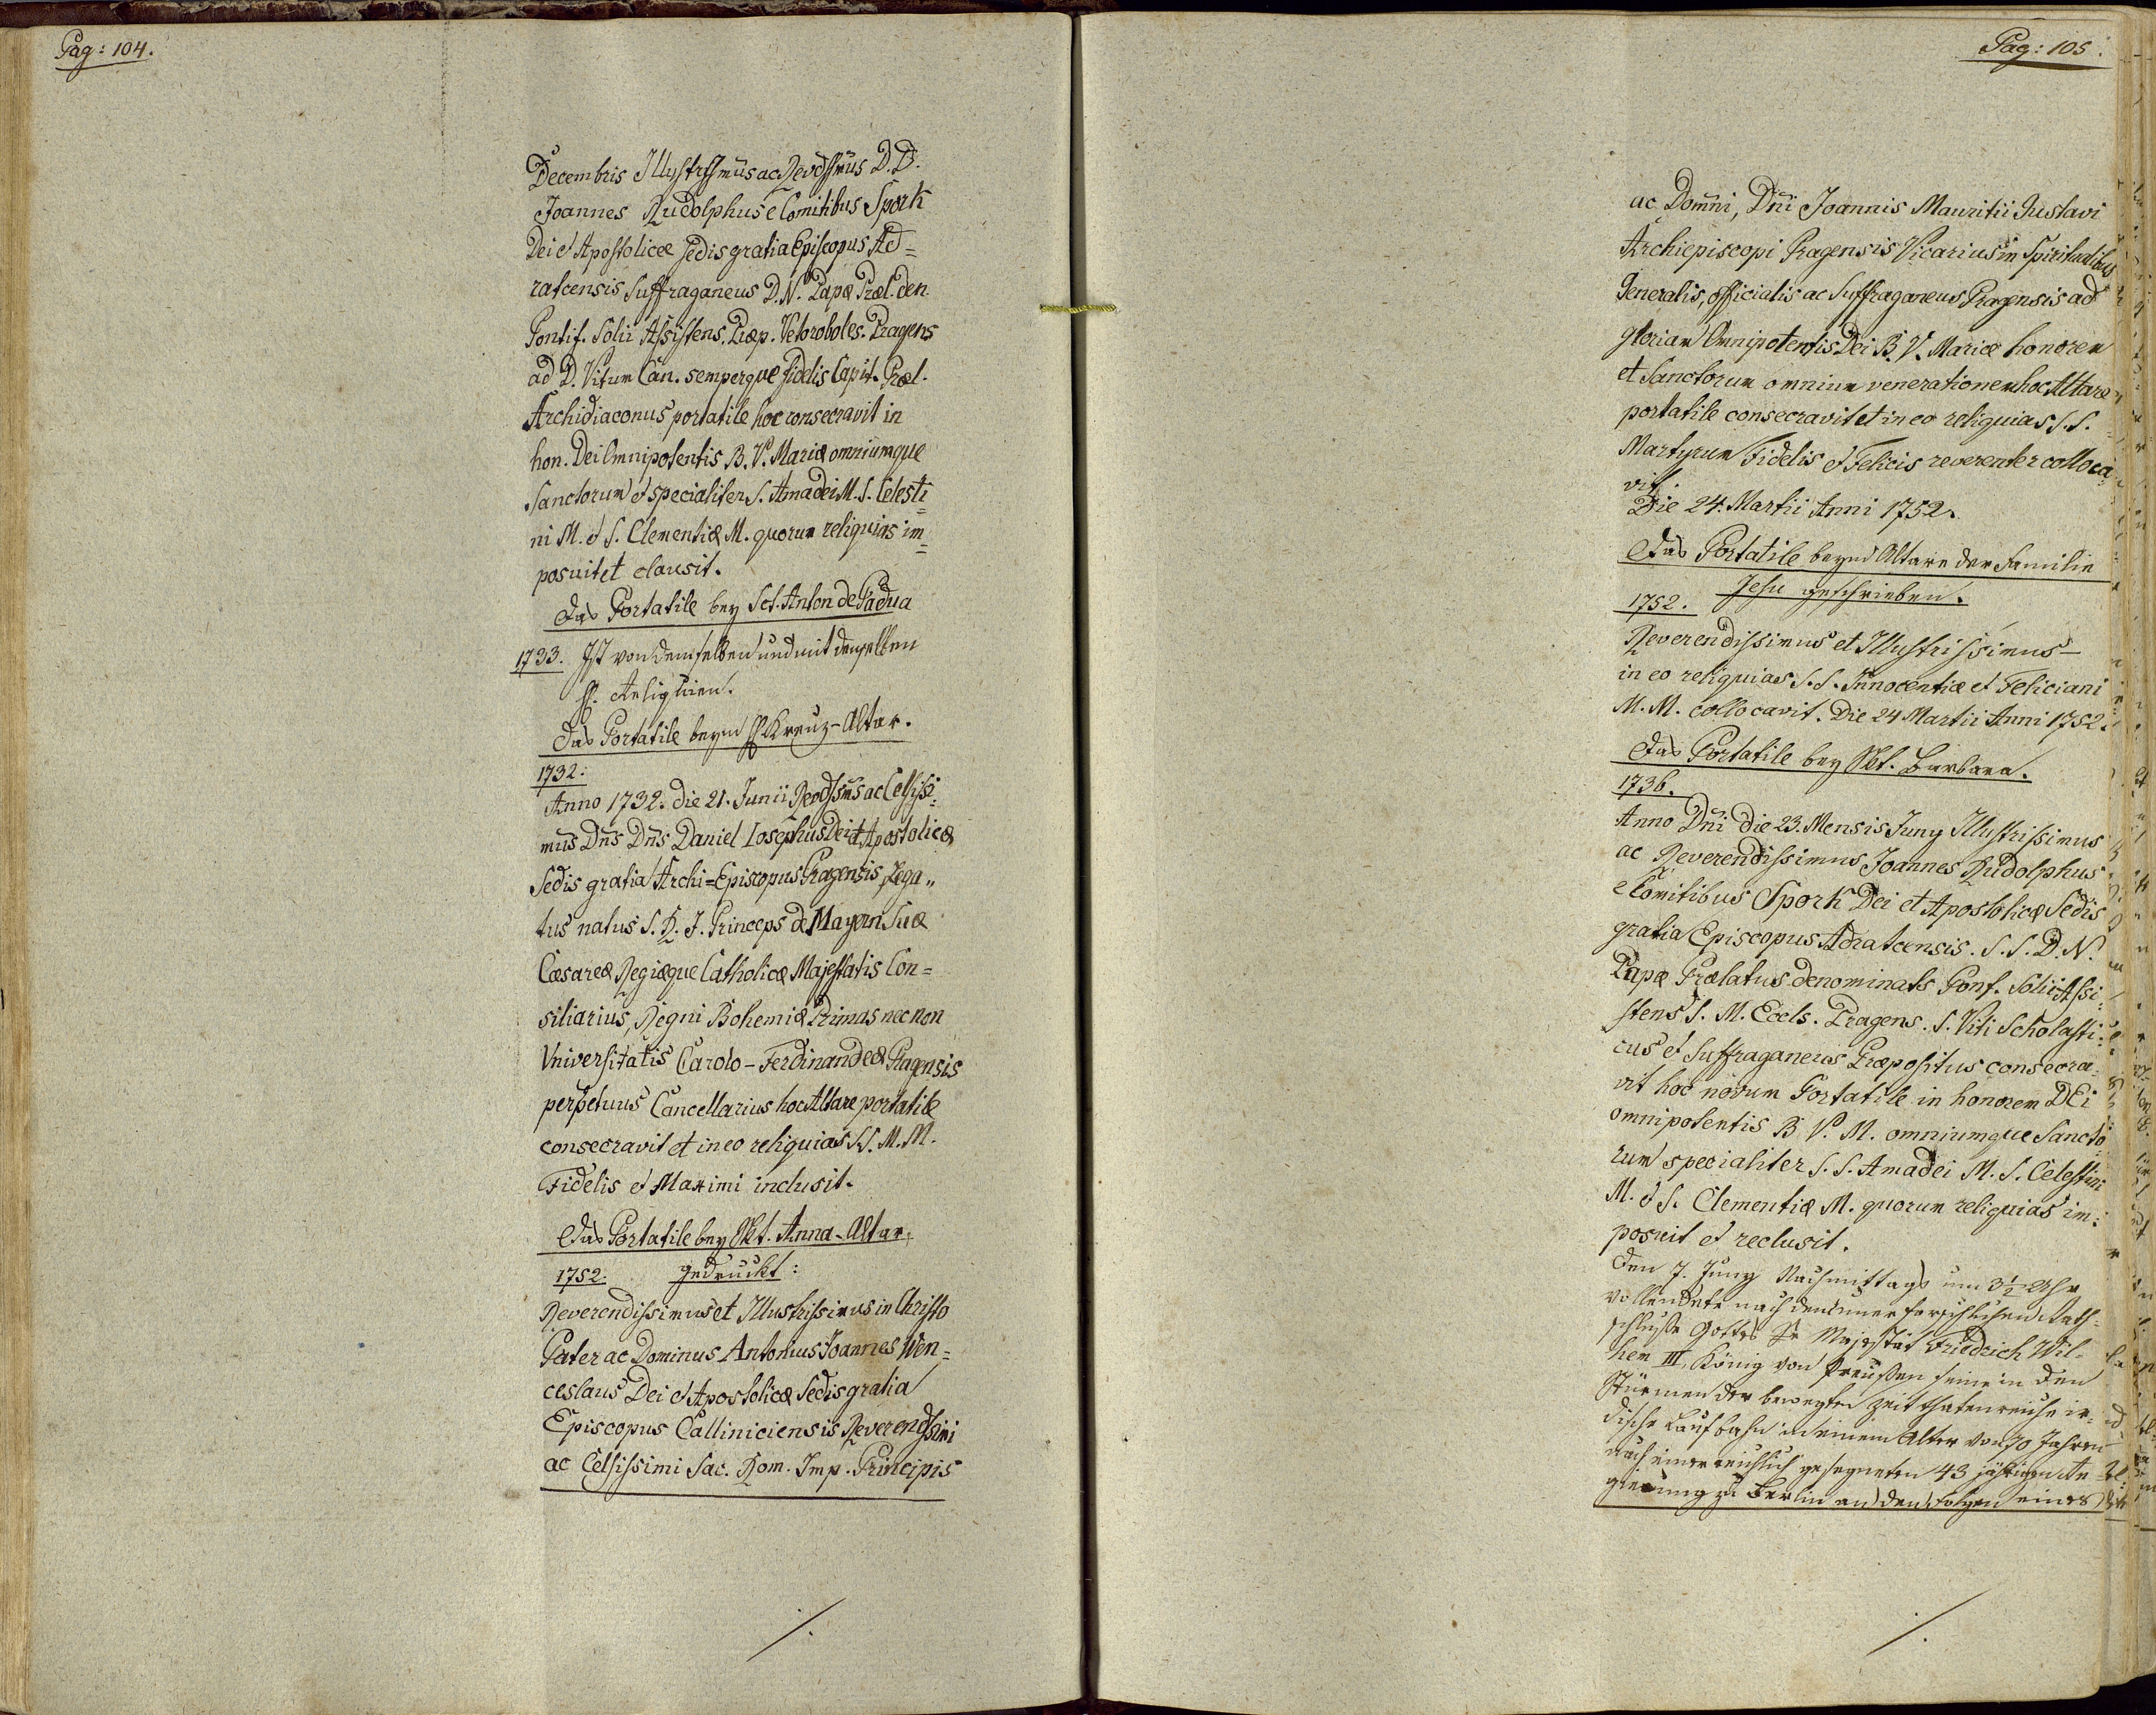 Pag: 104.
Decembris Illustrssmus ac Revdssmus D. D.
Joannes Rudolphus e Comitibus Spork
Dei et Apostolicæ Sedis gratia Episcopus Ad=
ratcensis Suffraganeus D. N. Papæ Præl. den.
Pontif. Solii Assistens. Præp. Vetoroboles. Pragens
ad D. Vitum Can. semperque fidelis Capit. Præl.
Archidiaconus portatile hoc consecravit in
hon. Dei Omnipotentis B. V. Mariæ omniumque
Sanctorum et specialiter S. Amadei M. S. Celesti=
ni M. et S. Clementiæ M. quorum reliquias im=
posuit et clausit.
Das Portatile bey Sct. Anton de Padua
1733. Ist von demselben und mit denselben
H. Reliquien.
Das Portatile beym H. Kreuz-Altar.
1732:
Anno 1732. die 21. Junii Revdssms ac Celsissi=
mus Dns Dns Daniel Iosephus Dei et Apostolicæ
Sedis gratia Archi=Episcopus Pragensis, Lega„
tus natus S. R. I. Princeps de Mayern Suæ
Cæsareæ Regiæque Catholicæ Majestatis Con=
siliarius, Regni Bohemiæ Primas nec non
Vniversitatis Carolo-Ferdinandeæ Pragensis
perpetuus Cancellarius hoc Altare portatile
consecravit et in eo reliquias S.S. M. M.
Fidelis et Maximi inclusit.
Das Portatile bey Skt. Anna-Altar,
1752. gedruckt:
Reverendissimus et Illustrissimus in Christo
Pater ac Dominus Antonius Joannes Wen=
ceslaus Dei et Apostolicæ Sedis gratia
Episcopus Calliniciensis Reverendssimi
ac Celsissimi Sac. Rom. Imp. Principis
./.
Pag: 105.
ac Domni, Dni Joannis Mauritii Gustavi
Archiepiscopi Pragensis Vicarius in Spiritualibus
Generalis, officialis ac Suffraganeus Pragensis ad
gloriam Omnipotentis Dei B. V. Mariæ honorem
et Sanctorum omnium venerationem hoc Altare
portatile consecravit et in eo reliquias S. S.
Martyrum Fidelis et Felicis reverenter colloca=
vit.
Die 24. Martii Anni 1752.
Das Portatile beym Altare der Familie
1752. Jesu geschrieben.
Reverendissimus et Illustrissimus—
in eo reliquias S. S. Innocentiæ et Feliciani
M. M. collocavit. Die 24 Martii Anni 1752.
Das Portatile bey Skt. Barbara.
1736.
Anno Dni die 23. Mensis Juny Illustrissimus
ac Reverendissimus Joannes Rudolphus
e Comitibus Spork Dei et Apostolicæ Sedis
gratia Episcopus Adratcensis. S. S. D. N.
Papæ Prælatus denominats Pont. Solii Assi:
stens S. M. Ecels. Pragens. S. Viti Scholasti:
cus et Suffraganeus Præpositus consecra:
vit hoc novum Portatile in honorem DEi
omnipotentis B. V. M. omniumque Sancto
rum specialiter S. S. Amadei M. S. Celestini
M. et S. Clementiæ M. quorum reliquias im:
posuit et reclusit.
Den 7. Juny Nachmittags um 3½ Uhr
vollendete nach dem unerforschlichen Rath=
schluße Gottes Se Majestät Friedrich Wil=
hem III, König von Preußen seine in den
Stürmen der bewegten Zeit thatenreiche ir=
dische Laufbahn in einem Alter von 70 Jahren
nach einer reichlich gesegneten 43 jährigen Re=
gierung zu Berlin an den Folgen eines
./.